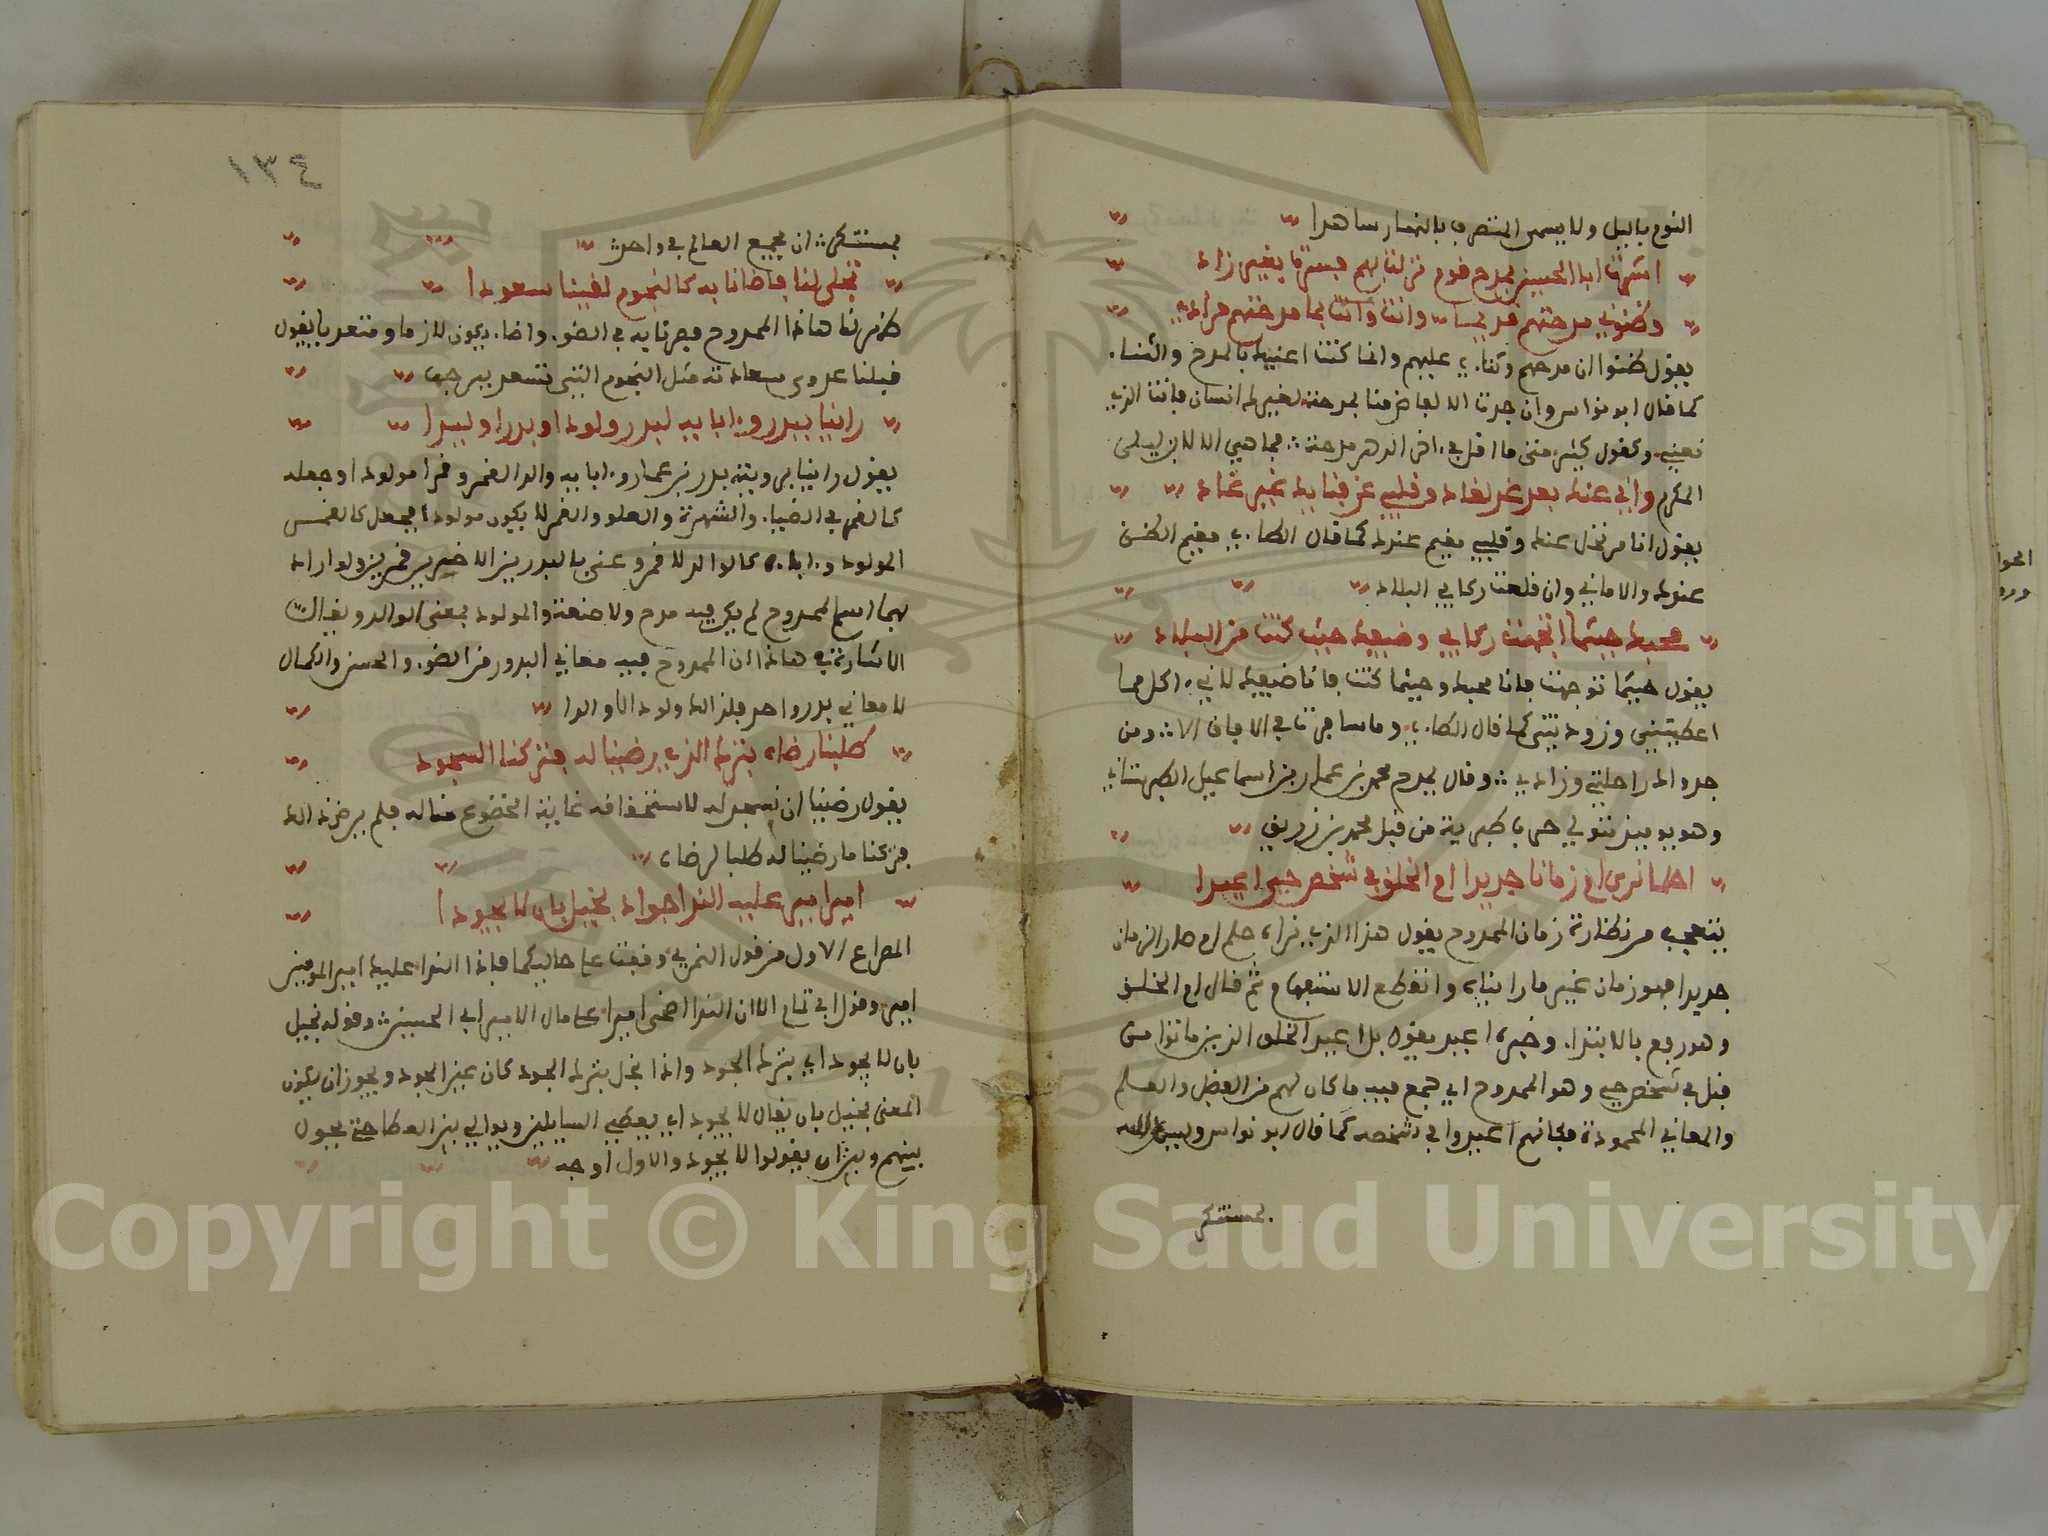 النوم بالليل ولا يسمى المتصرف بالنهار ساهدا
اشرت ابا الحسين بمدح قوم نزلت بهم فسرت بغير زاد
وظنوني مدحتهم قديما وانت بما مدحتهم مرادي
يقول ظنوا ان مدحهم وثناءي عليهم وانما كنت اعنيك بالمدح والثناء
كما قال ابو نواس وان جرت الالفاظ منا بمدحة لغيرك انسان فانت الذي
نعني وكقول كثير متى ما اقل في اخر الدهر مدحة فما هي الا لابن ليلى
المكرم واني عنك بعد غد لغاد وقلبي عن فنائك غير غاد
يقول انا مرتحل عنك وقلبي مقيم عندك كما قال الطاءي مقيم الظن
عندك والاماني وان قلقت ركابي البلاد
محبك حيثما اتجهت ركابي وضيفك حيث كنت من البلاد
يقول حيثما توجهت فانا محبك وحيثما كنت فانا ضيفك لاني اكل مما
اعطيتني وزودتني كما قال الطاءي وما سافرت في الافاق الا ومن
جدواك راحلتي وزادي وقال يمدح بدر بن عمار بن اسماعيل الطبرستاني
وهو يوميذ يتولى حرب طبرية من قبل محمد بن رايق
احلما نرى ام زمانا جديدا ام الخلق في شخص حي اعيدا
يتعجب من نضارة زمان الممدوح يقول هذا الذي نراه حلم ام صار الزمان
جديدا فهو زمان غير ما رايناه وانقطع الاستفهام ثم قال ام الخلق
وهو رفع بالابتداء وخبره اعيد يقول بل اعيد الخلق الذين ماتوا من
قبل في شخص حي وهو الممدوح اي جمع فيه ما كان لهم من الفضل والعلم
والمعاني المحمودة فكانهم اعيدوا في شخصه كما قال ابو نواس وليس لله
بمستنكر
١٣٤
بمستنكر ان يجمع العالم في واحد
تجلى لنا فاضانا به كانجوم لقينا سعودا
ظهر لنا هاذا الممدوح فصرنا به في الضوء واضاء يكون لازما ومتعديا يقول
قبلنا عدوى سعادته مثل النجوم التي تسعد ببرجها
راينا ببدر وءابايه لبدر ولودا وبدرا وليدا
يقول راينا برويته بدر بن عمار وءابايه والد القمر وقمرا مولودا وجعله
كالقمر في الضياء والشهرة والعلو والقمر لا يكون مولودا فجعل كالقمر
المولود وءاباءه كالوالد للقمر وعنى بالبدرين الاخيرين قمرين ولو اراد
بهما اسم الممدوح لم يكن فيه مدح ولا صنعة والمولود بمعنى الوالد ويقال
الاشارة في هاذا ان الممدوح فيه معاني البدور من الضوء والحسن والكمال
لا معاني بدر واحد فلذالك ولود الا والدا
طلبنا رضاه بترك الذي رضينا له فتركنا السجودا
يقول رضينا ان نسجد له لاستحقاقه غاية الخضوع منا له فلم يرض ذالك
فتركنا ما رضينا له طلبا لرضاه
امير امير عليه الندا جواد بخيل بان لا يجودا
المصراع الاول من قول النمري وقفت على حاليكما فاذا الندا عليك امير المومنين
امير وقول ابي تمام الا ان الندا اضحى اميرا على مال الامير ابي الحسين وقوله بخيل
بان لا يجود اي بترك الجود واذا بخل بترك الجود كان عين الجود ويجوز ان يكون
المعنى بخيل بان يقال لا يجود اي يعطي السايلين ويوالي بين العطا حتى يحول
بينهم وبين ان يقولوا لا يجود والاول اوجه
Copyright © King Saud University